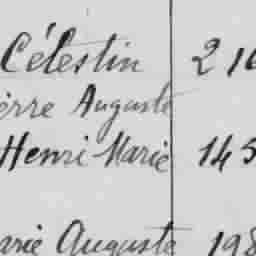 Célestin 216
erre Auguste
Henri Marie 145
arie Auguste 198